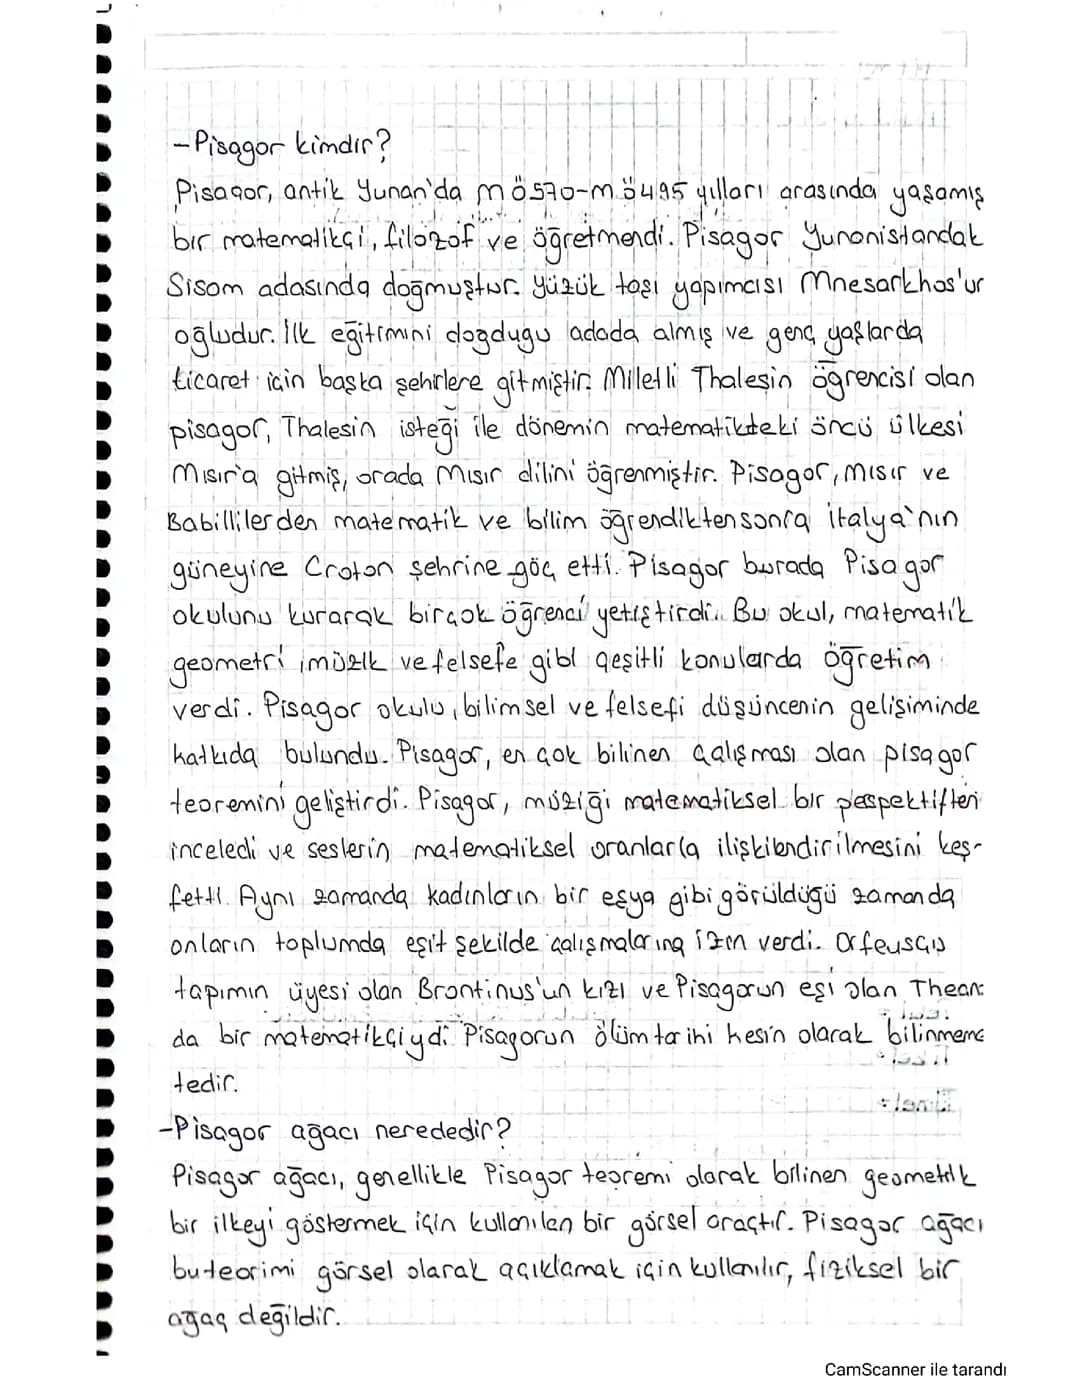 -Pisagor kimdir?
Pisagor, antik Yunan'da MÖ570-M.Ö495 yılları arasında yaşamış
bir matematikçi, filozof ve öğretmendi. Pisagor Yunanistandak
Sisam adasında doğmuştur. Yüzük taşı yapımcısı Mnesarkhos'ur
oğludur. İlk eğitimini doğdugu adada almış ve genç yaşlarda
ticaret için başka şehirlere gitmiştir. Miletli Thalesin öğrencisi olan
pisagor, Thalesin isteği ile dönemin matematikteki öncü ülkesi
Mısır'a gitmiş, orada Mısır dilini öğrenmiştir. Pisagor, Mısır ve
Babillilerden matematik ve bilim öğrendikten sonra italya'nın
güneyine Croton şehrine göç etti. Pisagor burada Pisagor
okulunu kurarak birçok öğrenci yetiştirdi. Bu okul, matematik
geometri, müzik ve felsefe gibi çeşitli konularda öğretim
verdi. Pisagor okulu, bilimsel ve felsefi düşüncenin gelişiminde
katkıda bulundu. Pisagor, en çok bilinen çalışması olan pisagor
teoremini geliştirdi. Pisagor, müziği matematiksel bir perspektiften
inceledi ve seslerin matematiksel oranlarla ilişkilendirilmesini keş-
fetti. Aynı zamanda kadınların bir eşya gibi görüldüğü zamanda
onların toplumda eşit şekilde çalışmalarına izin verdi. Orfeusçu
tapımın üyesi olan Brontinus'un kızı ve Pisagorun eşi olan Thean
da bir matematikçiydi. Pisagorun ölüm tarihi kesin olarak bilinmeme
tedir.
-Pisagor ağacı nerededir?
Pisagor ağacı, genellikle Pisagor teoremi olarak bilinen geometrik
bir ilkeyi göstermek için kullanılan bir görsel araçtır. Pisagor ağacı
bu teorimi görsel olarak açıklamak için kullanılır, fiziksel bir
ağaç değildir.
CamScanner ile tarandı